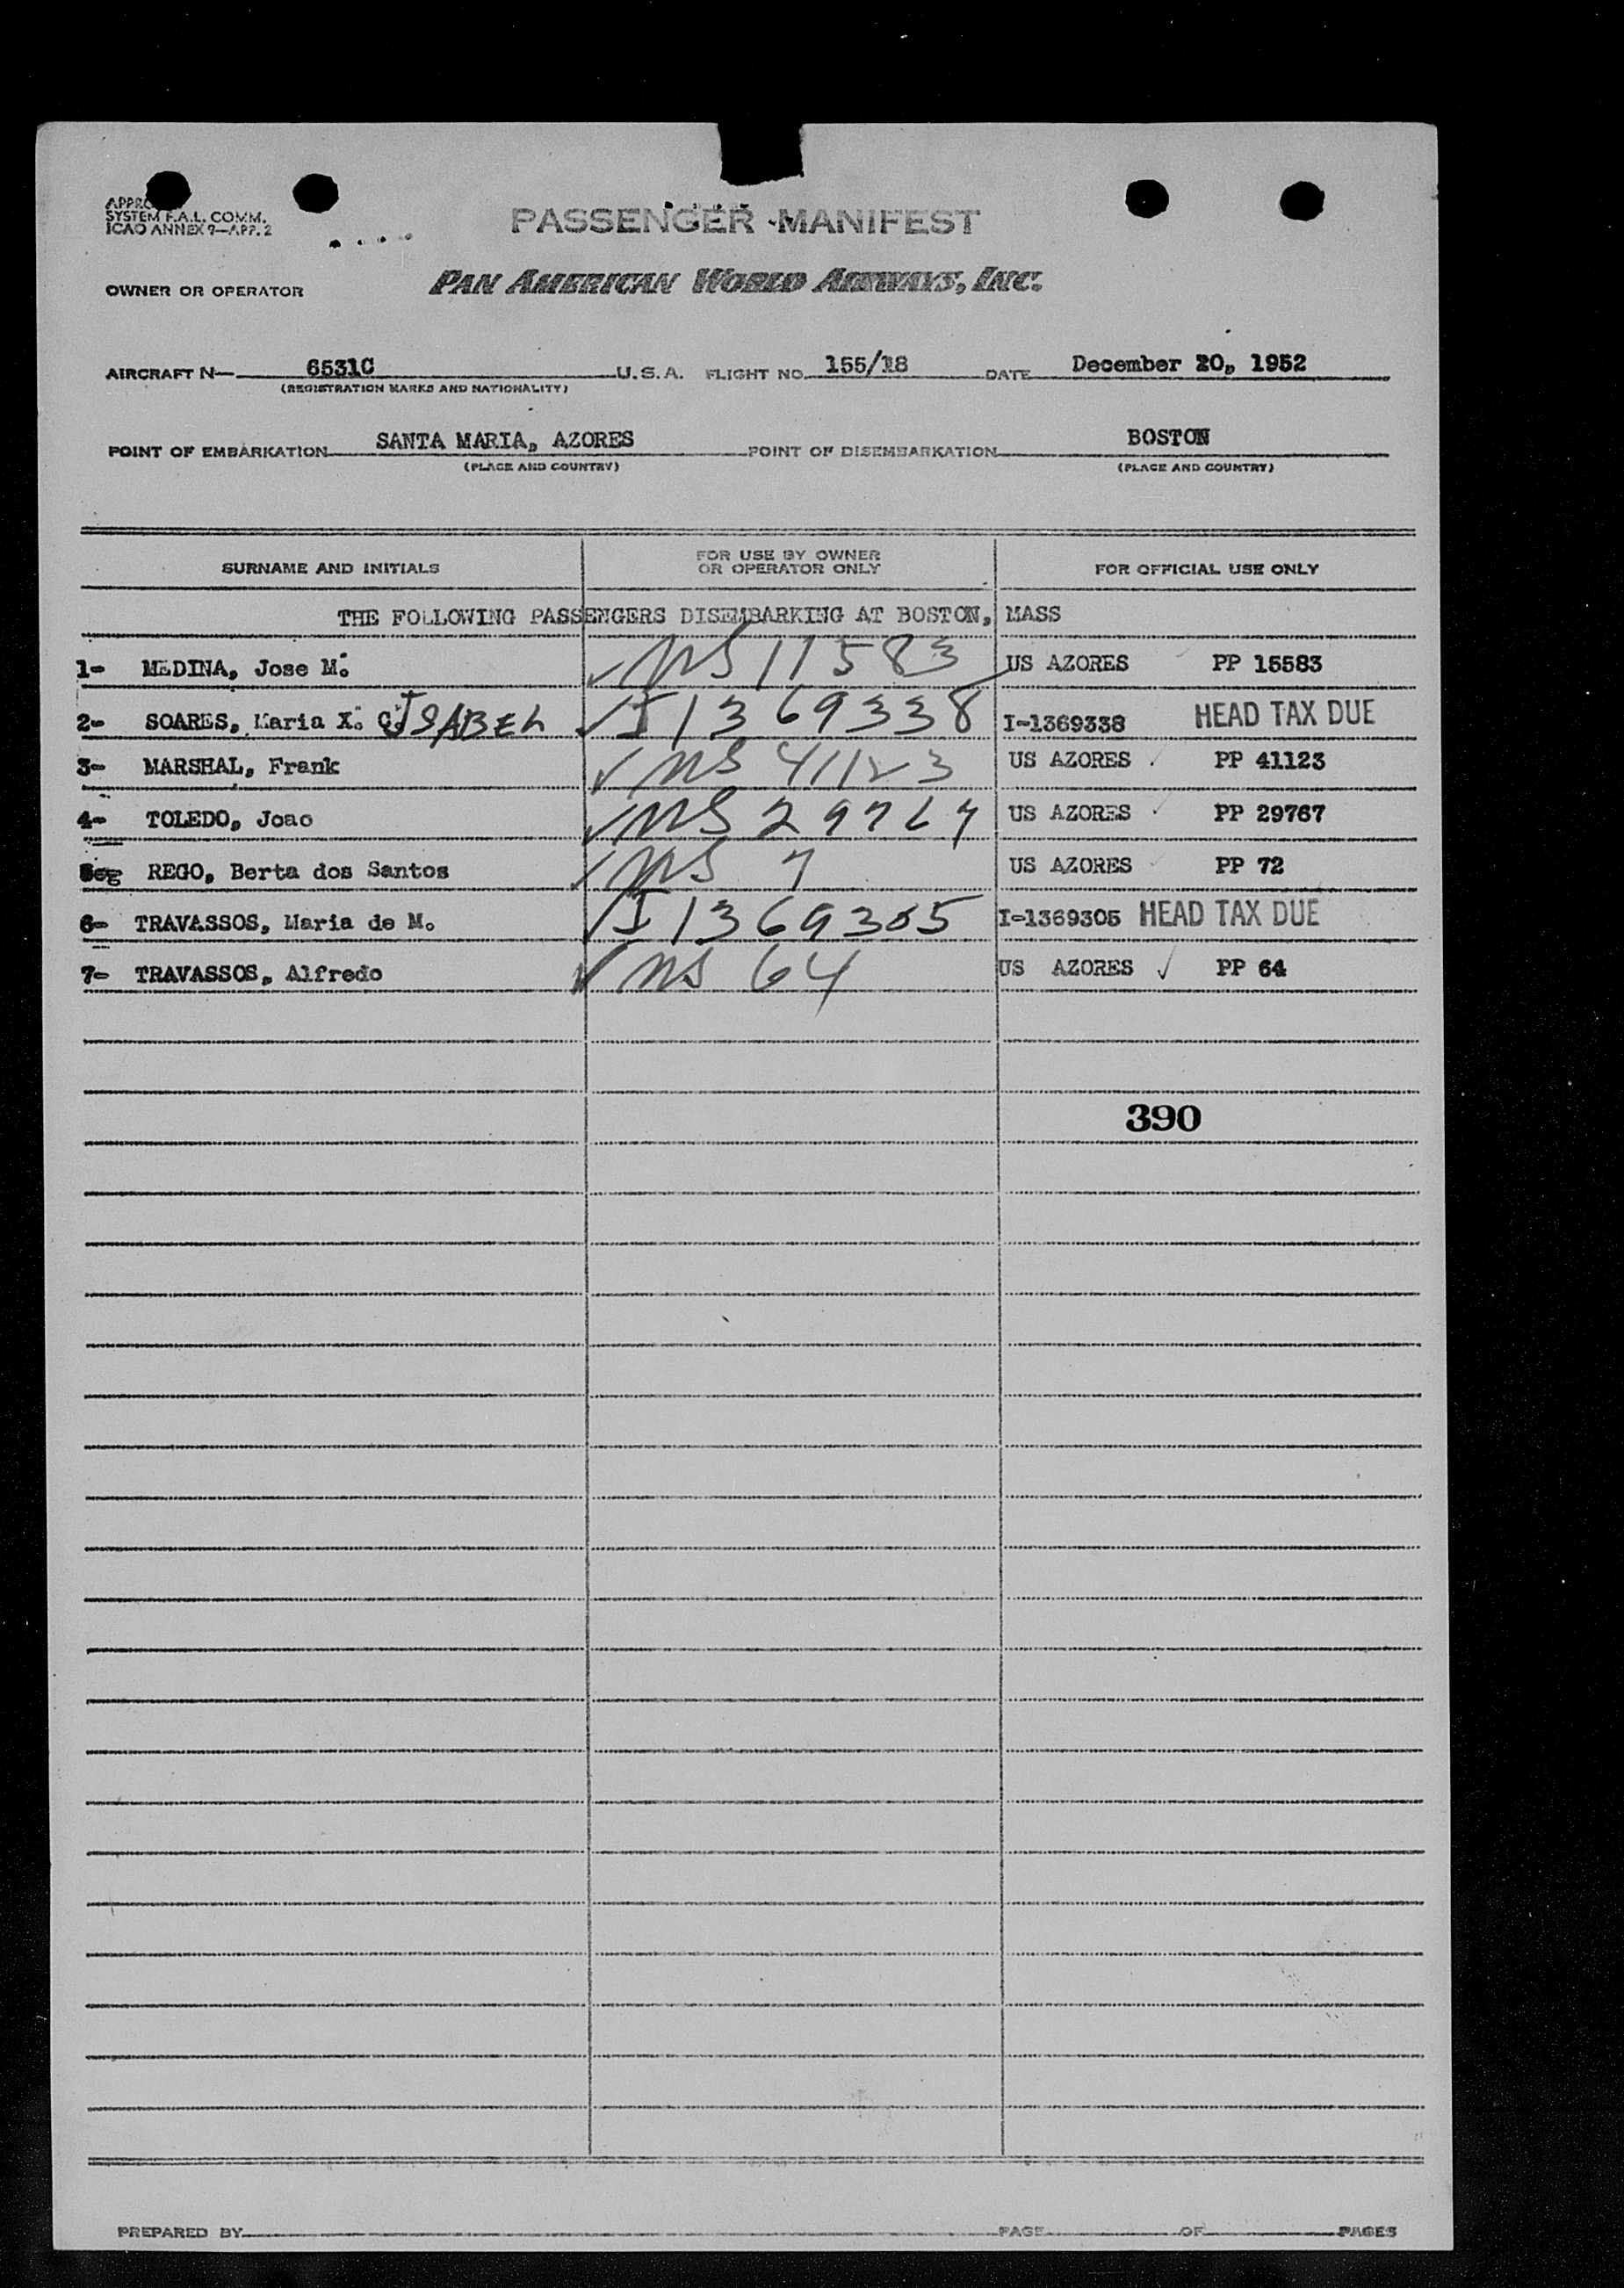 SYSTEM F.A.L. COMM.
ICAO ANNEX 9—APP. 2
PASSENGER MANIFEST
OWNER OR OPERATOR PAN AMERICAN WORLD AIRWAYS, INC.
AIRCRAFT N— 6531C U.S.A. FLIGHT NO. 155/18 DATE December 20, 1952
(REGISTRATION MARKS AND NATIONALITY)
POINT OF EMBARKATION SANTA MARIA, AZORES POINT OF DISEMBARKATION BOSTON
(PLACE AND COUNTRY) (PLACE AND COUNTRY)
SURNAME AND INITIALS FOR USE BY OWNER OR OPERATOR ONLY FOR OFFICIAL USE ONLY
THE FOLLOWING PASSENGERS DISEMBARKING AT BOSTON, MASS
1- MEDINA, Jose M. ✓ MS 11583 US AZORES PP 15583
2- SOARES, Maria X. ISABEL ✓ I 1369338 I-1369338 HEAD TAX DUE
3- MARSHAL, Frank ✓ MS 41123 US AZORES ✓ PP 41123
4- TOLEDO, Joao ✓ MS 29767 US AZORES ✓ PP 29767
REGO, Berta dos Santos ✓ MS 7 US AZORES ✓ PP 72
6- TRAVASSOS, Maria de M. ✓ I 1369305 I-1369305 HEAD TAX DUE
7- TRAVASSOS, Alfredo ✓ MS 64 US AZORES ✓ PP 64
390
PREPARED BY PAGE OF PAGES